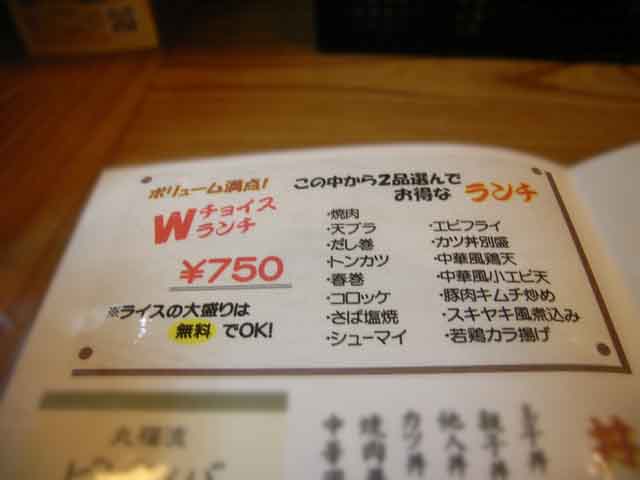 ボリューム満点!
Wチョイスランチ
¥750
※ライスの大盛りは
無料でOK!
この中から2品選んで
お得なランチ
・焼肉
・天プラ
・だし巻
・トンカツ
・春巻
・コロッケ
・さば塩焼
・シューマイ
・エビフライ
・カツ丼別盛
・中華風鶏天
・中華風小エビ天
・豚肉キムチ炒め
・スキヤキ風煮込み
・若鶏カラ揚げ
丼
親子丼
他人丼
カツ丼
焼肉丼